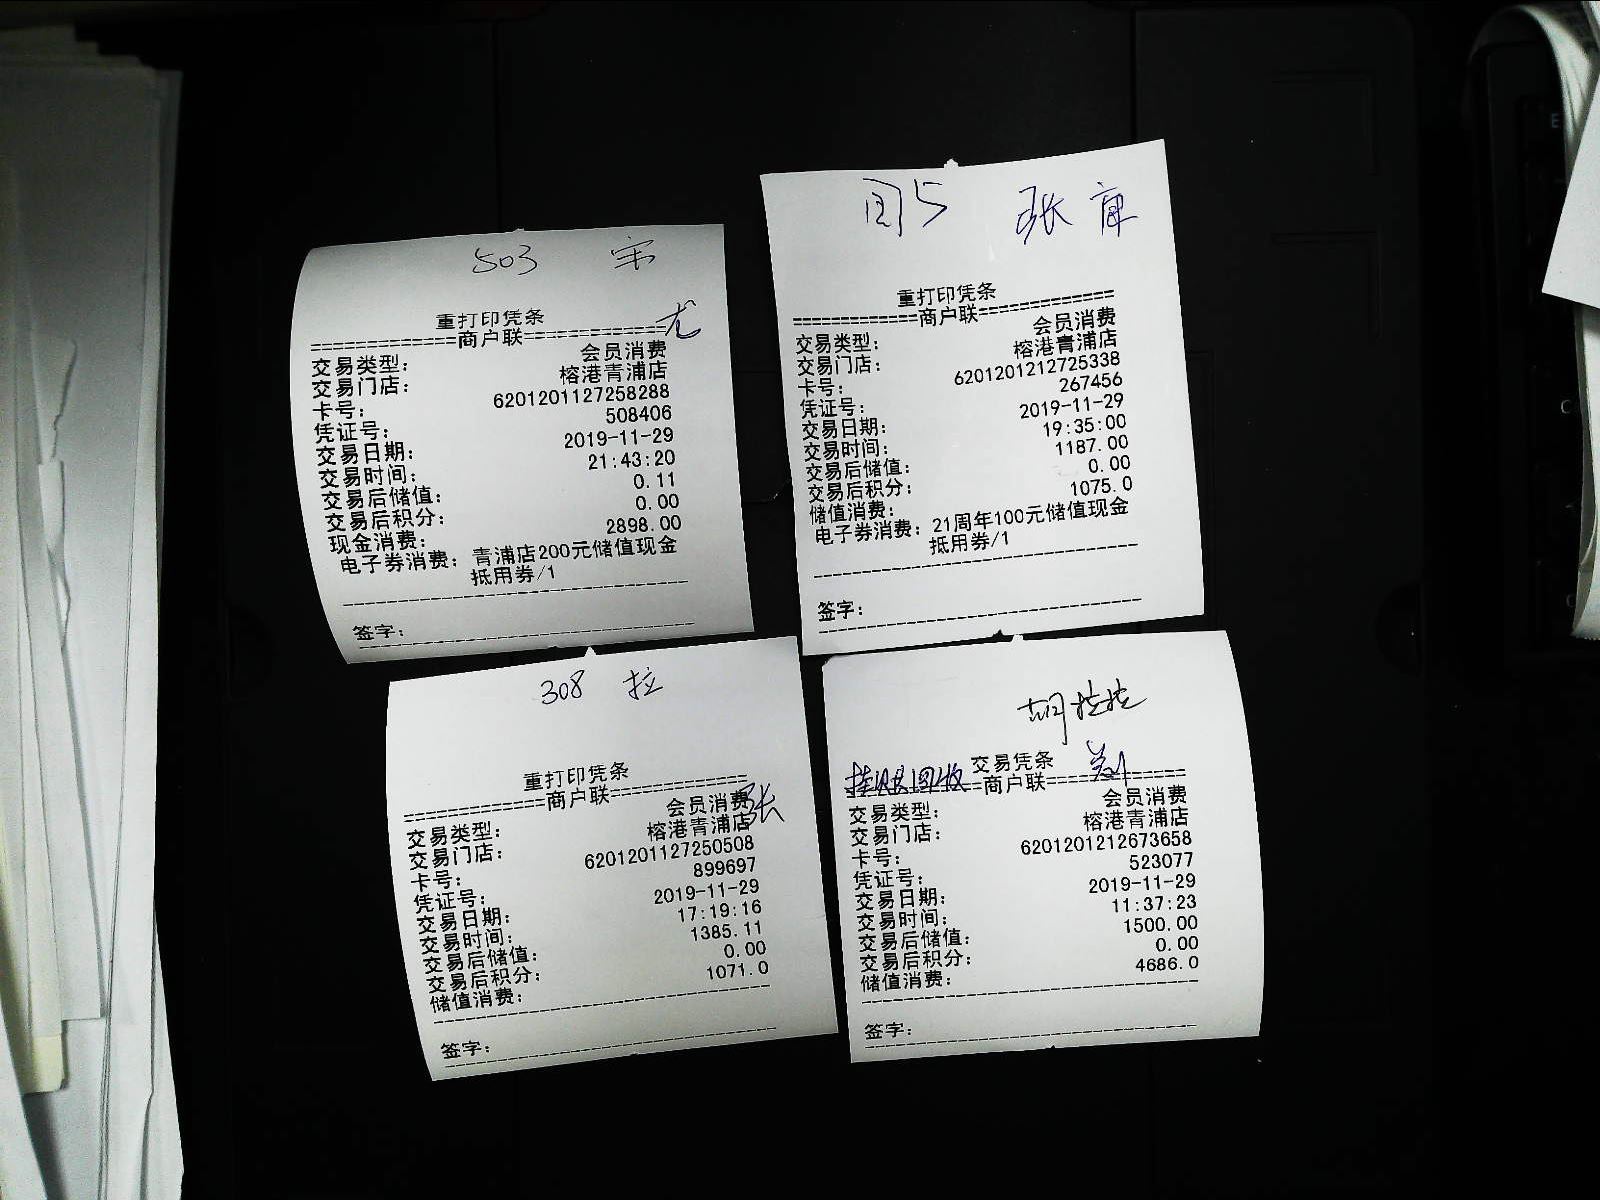 503 宋
尤
重打印凭条
=============商户联=============
交易类型: 会员消费
交易门店: 榕港青浦店
卡号: 6201201127258288
凭证号: 508406
交易日期: 2019-11-29
交易时间: 21:43:20
交易后储值: 0.11
交易后积分: 0.00
现金消费: 2898.00
电子券消费: 青浦店200元储值现金
抵用券/1
签字:
张
重打印凭条
============商户联============
交易类型: 会员消费
交易门店: 榕港青浦店
卡号: 6201201212725338
凭证号: 267456
交易日期: 2019-11-29
交易时间: 19:35:00
交易后储值: 1187.00
交易后积分: 0.00
储值消费: 1075.0
电子券消费: 21周年100元储值现金
抵用券/1
签字:
308 拉
重打印凭条
=============商户联=============
张
交易类型: 会员消费
交易门店: 榕港青浦店
卡号: 6201201127250508
凭证号: 899697
交易日期: 2019-11-29
交易时间: 17:19:16
交易后储值: 1385.11
交易后积分: 0.00
储值消费: 1071.0
签字:
胡拉拉
交易凭条
挂账回收 商户联=============
交易类型: 会员消费
交易门店: 榕港青浦店
卡号: 6201201212673658
凭证号: 523077
交易日期: 2019-11-29
交易时间: 11:37:23
交易后储值: 1500.00
交易后积分: 0.00
储值消费: 4686.0
签字: